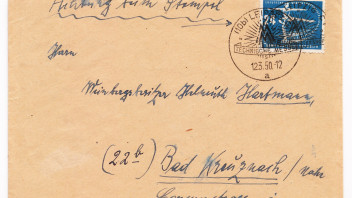 Achtung auf Stempel
(10b) LEIPZIG
24
TECHNISCHE MESSE
12.3.50.-12
a
Herrn
Weinbergsbesitzer Helmuth Hartmann,
(22b) Bad Kreuznach / Nahe